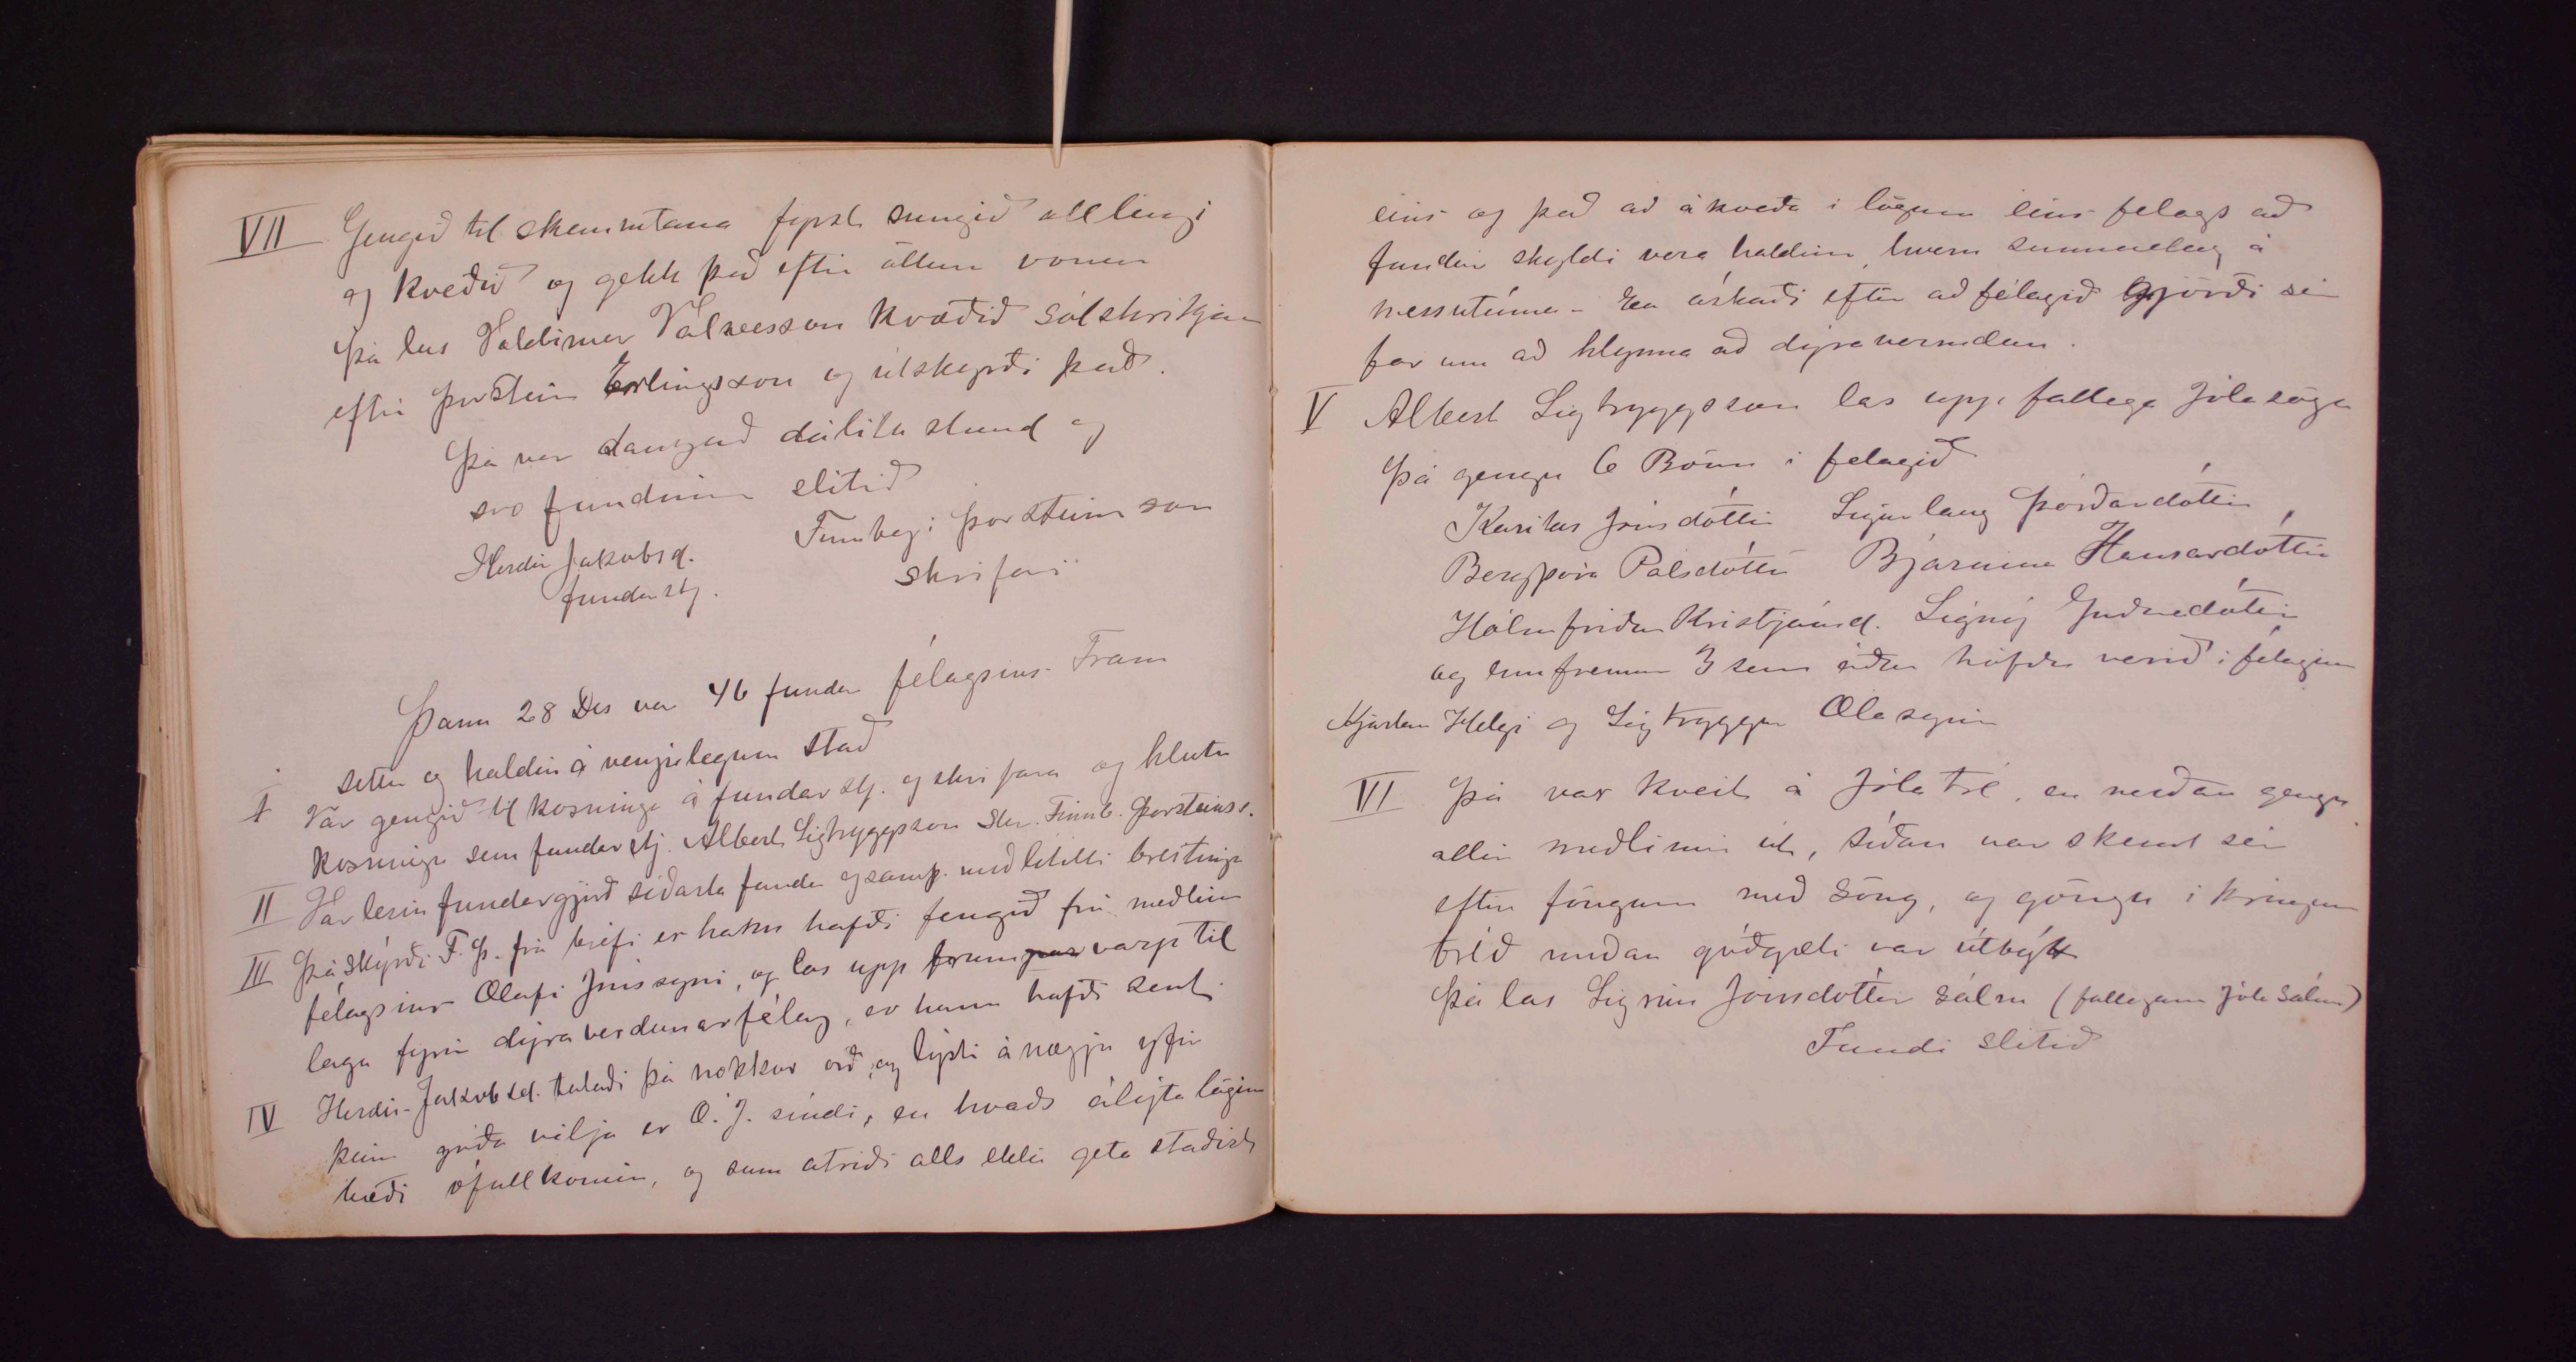 VII Gengið til skemmtana fyrst sungið all lengi
og kveðið og gekk það eftir öllum vonum
Þá las Valdimar Valvesson kvæðið sólskrikjan
eftir Þorstein Erlingsson og útskyrði það.
Þá var dansað dálitla stund og
svo fundinum slitið
Herdís Jakobsd. Finnbogi Þorsteinsson
fundarstj. skrifari
Þann 28 Des var 46 fundur félagsins Fram
settur og haldin á venjulegum stað
I Var gengið til kosninga á fundarstj. og skrifara og hlutu
kosningu sem fundarstj. Albert Sigtryggsson Skr. Finnb. Þorsteinss.
II Var lesin fundargjörð síðasta fundar og samþ. með lítilli breitingu
III Þá skýrði F. Þ. frá bréfi er hann hafði fengið frá meðlim
félagsins Olafi Jónssyni, og las upp frumvarp til
laga fyrir dýraverdunarfélag, er hann hafði sent.
IV Herdís Jakobsd. talaði þá nokkur orð, og lýsti ánægju yfir
þeim góða vilja er Ó. J. sindi, en kvaðs álíta lögin
bæði ófullkomin, og sum atriði alls ekki geta staðist
eins og það að ákveða i lögum eins felags að
fundir skyldi vera haldnir, hvern sunnudag á
messutíma - En óskaði eftir að félagið gjörði sér
far um að hlynna að dýraverndun.
V Albert Sigtryggsson las upp fallega jólasögu
Þá gengu 6 Börn i felagið
Karitas Jónsdóttir Sigurlaug Þórðardóttir
Bergþóra Pálsdóttir Bjarnina Hansardóttir
Hólmfriður Kristjánsd. Signý Guðnadóttir
og ennfremur 3 sem áður höfðu verið i félaginu
Kjartan Helgi og Sigtryggur Olasynir
VI Þá var kveikt á jóla tré, en meðan gengu
allir meðlimir út, síðan var skemt sér
eftir föngum með söng, og göngu i kringum
tréð meðan góðgæti var útbýtt
Þá las Sigrún Jónsdóttir sálm (fallegann jóla sálm)
Fundi slitið